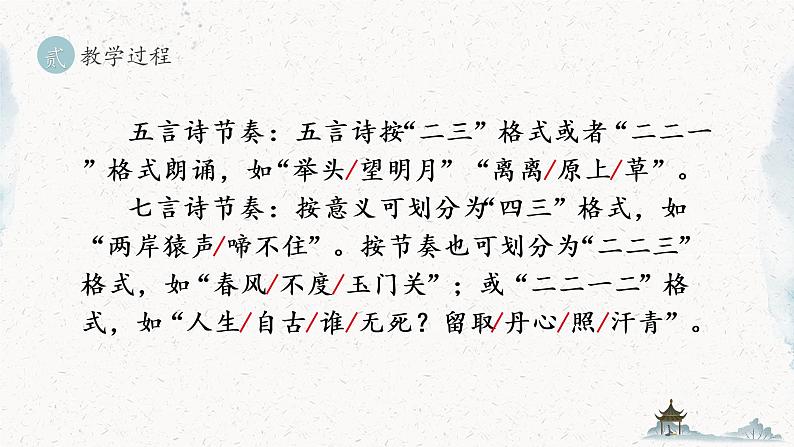 贰 教学过程
五言诗节奏：五言诗按“二三”格式或者“二二一
”格式朗诵，如“举头/望明月”“离离/原上/草”。
七言诗节奏：按意义可划分为“四三”格式，如
“两岸猿声/啼不住”。按节奏也可划分为“二二三”
格式，如“春风/不度/玉门关”；或“二二一二”格
式，如“人生/自古/谁/无死？留取/丹心/照/汗青”。